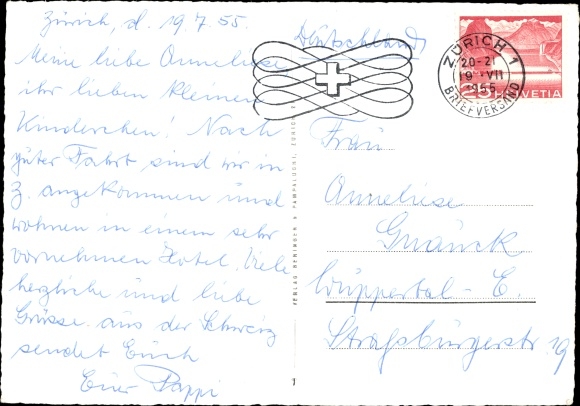 Zürich, d. 19.7.55.
Meine liebe Anneliese
ihr lieben kleinen
Kinderchen! Nach
guter Fahrt sind wir in
Z. angekommen und
wohnen in einem sehr
vornehmen Hotel. Viele
herzliche und liebe
Grüsse aus der Schweiz
sendet Euch
Euer Pappi
VERLAG BERINGER & PAMPALUCHI, ZÜRICH
Deutschland
ZÜRICH 1
20-21
19 VII
1955
BRIEFVERSAND
25 HELVETIA
Frau
Anneliese
Gnauck
Wuppertal-E.
Strassburgerstr. 19